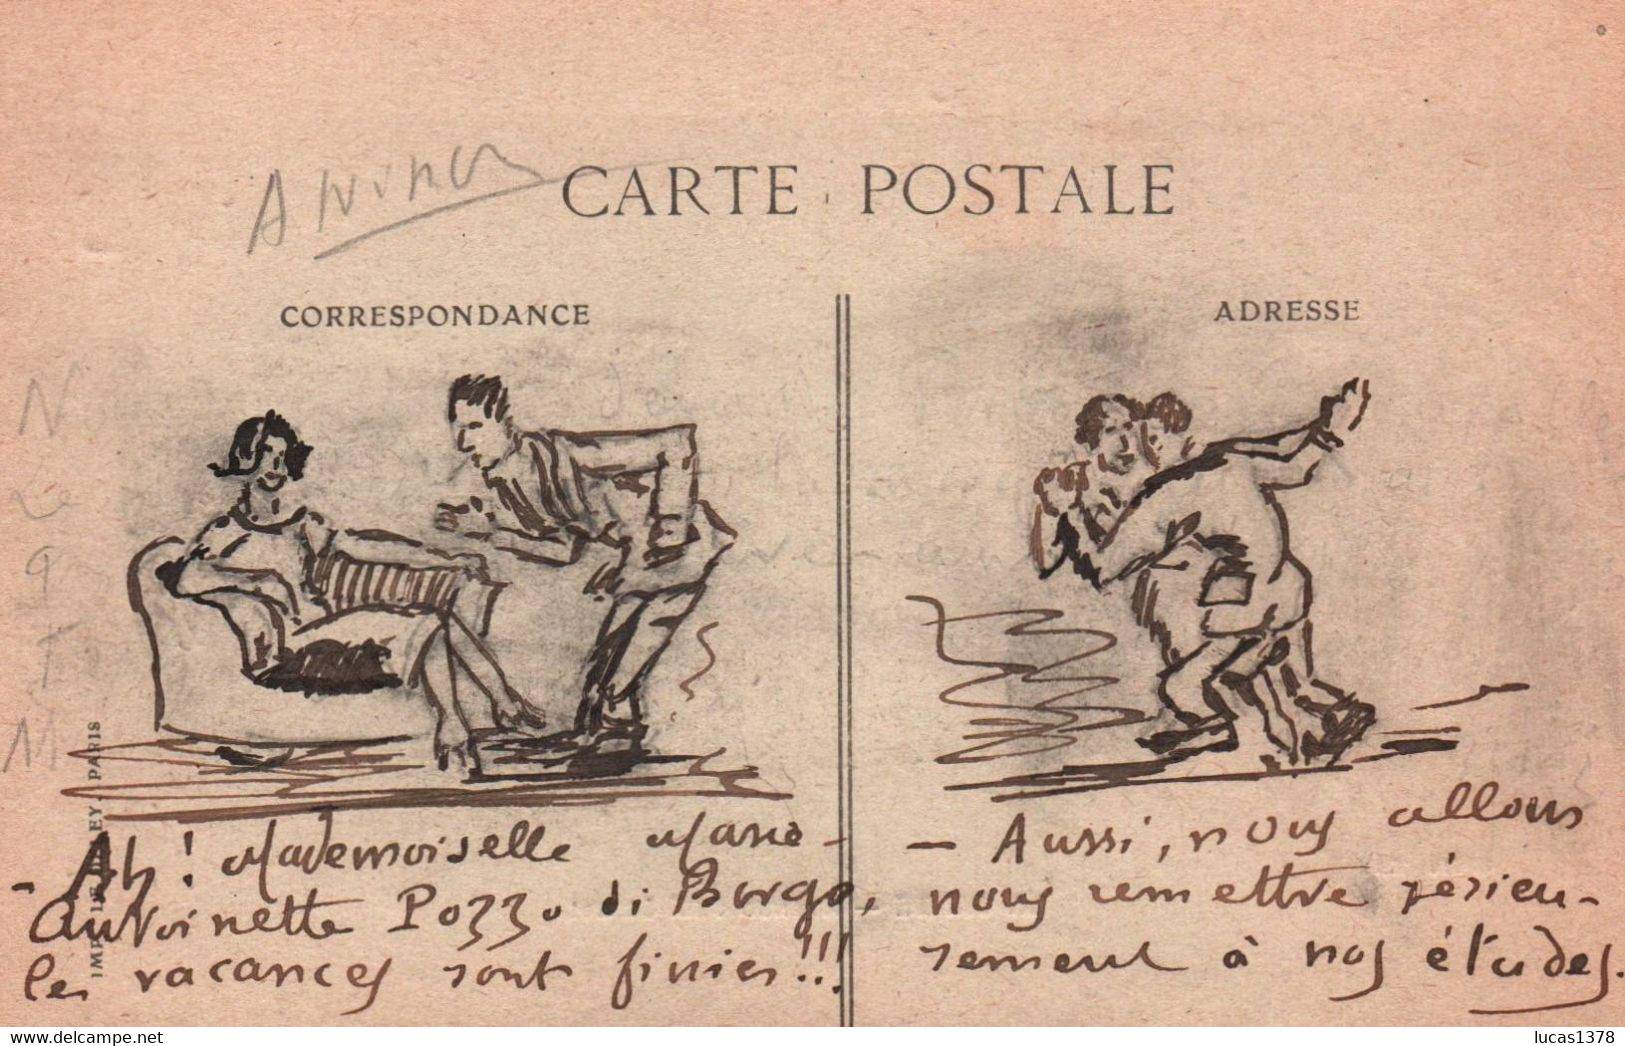 CARTE POSTALE
CORRESPONDANCE
ADRESSE
- Ah ! Mademoiselle Marie-
Antoinette Pozzo di Borgo,
les vacances sont finies !!!
- Aussi, nous allons
nous remettre sérieu-
sement à nos études.
PARIS
delcampe.net
lucas1378